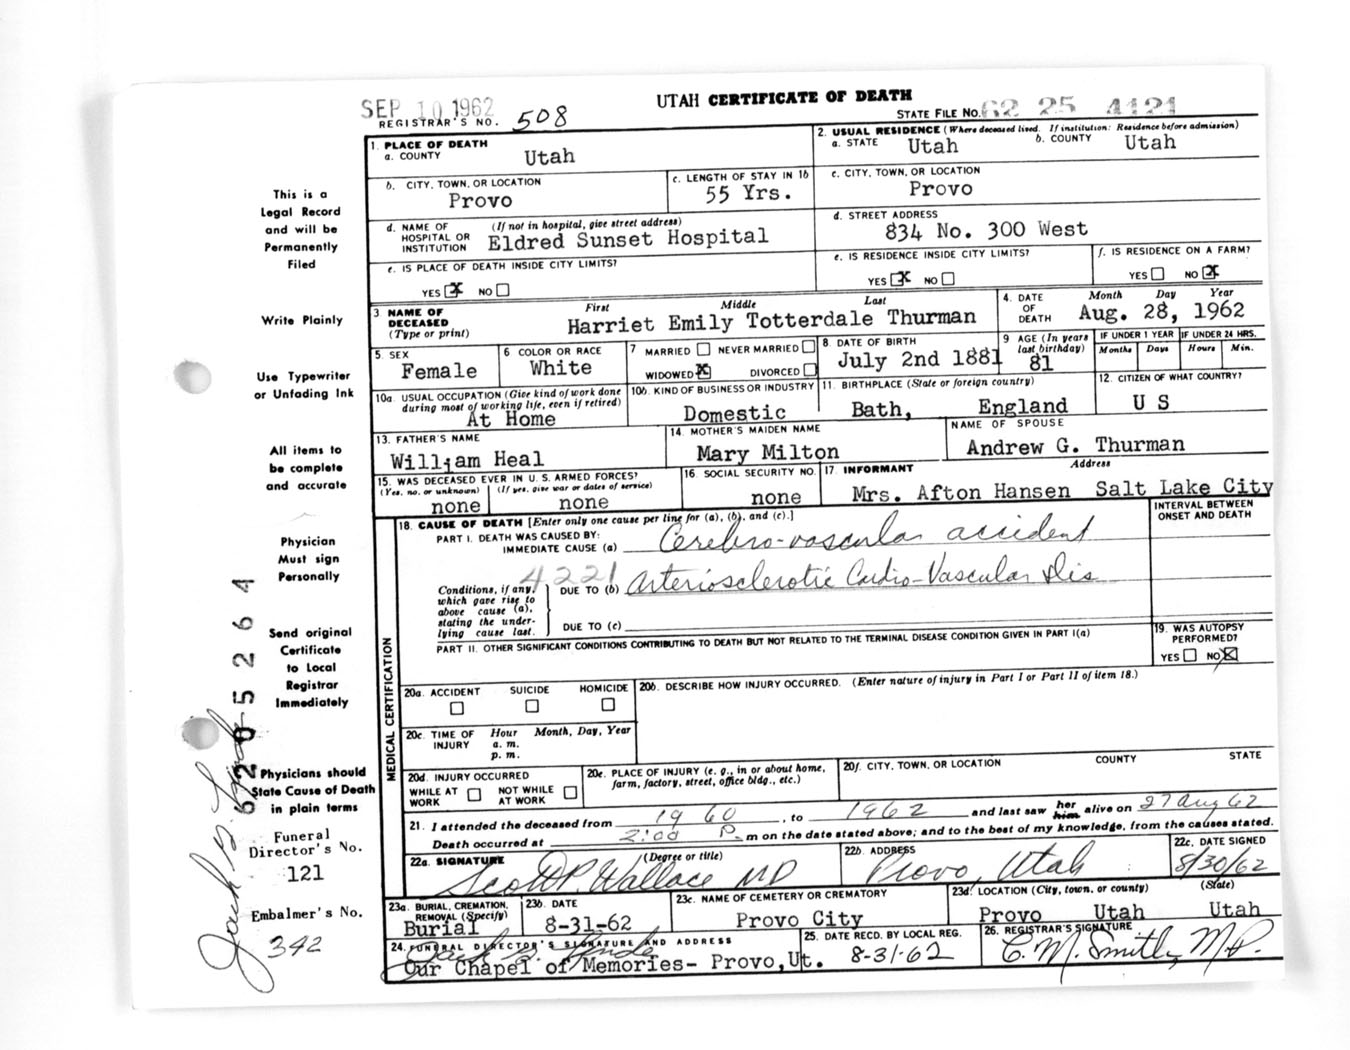 SEP 10 1962
UTAH CERTIFICATE OF DEATH
REGISTRAR'S NO. 508
STATE FILE NO. 62 25 4121
1. PLACE OF DEATH
a. COUNTY Utah
2. USUAL RESIDENCE (Where deceased lived. If institution: Residence before admission)
a. STATE Utah b. COUNTY Utah
b. CITY, TOWN, OR LOCATION
Provo
c. LENGTH OF STAY IN 1b
55 Yrs.
c. CITY, TOWN, OR LOCATION
Provo
d. NAME OF HOSPITAL OR INSTITUTION (If not in hospital, give street address)
Eldred Sunset Hospital
d. STREET ADDRESS
834 No. 300 West
e. IS PLACE OF DEATH INSIDE CITY LIMITS?
YES X NO
e. IS RESIDENCE INSIDE CITY LIMITS?
YES X NO
f. IS RESIDENCE ON A FARM?
YES NO X
3 NAME OF DECEASED (Type or print) First Middle Last
Harriet Emily Totterdale Thurman
4. DATE OF DEATH Month Day Year
Aug. 28, 1962
5. SEX
Female
6 COLOR OR RACE
White
7 MARRIED NEVER MARRIED
WIDOWED X DIVORCED
8 DATE OF BIRTH
July 2nd 1881
9 AGE (In years last birthday)
81
IF UNDER 1 YEAR IF UNDER 24 HRS.
Months Days Hours Min.
10a. USUAL OCCUPATION (Give kind of work done during most of working life, even if retired)
At Home
10b. KIND OF BUSINESS OR INDUSTRY
Domestic
11. BIRTHPLACE (State or foreign country)
Bath, England
12. CITIZEN OF WHAT COUNTRY?
U S
13. FATHER'S NAME
William Heal
14. MOTHER'S MAIDEN NAME
Mary Milton
NAME OF SPOUSE
Andrew G. Thurman
15. WAS DECEASED EVER IN U. S. ARMED FORCES?
(Yes, no, or unknown) (If yes, give war or dates of service)
none none
16. SOCIAL SECURITY NO.
none
17. INFORMANT Address
Mrs. Afton Hansen Salt Lake City
18. CAUSE OF DEATH [Enter only one cause per line for (a), (b), and (c).]
INTERVAL BETWEEN ONSET AND DEATH
PART I. DEATH WAS CAUSED BY:
IMMEDIATE CAUSE (a) Cerebro-vascular accident
4221
Conditions, if any, which gave rise to above cause (a), stating the underlying cause last.
DUE TO (b) Arteriosclerotic Cardio-Vascular Dis
DUE TO (c)
PART II. OTHER SIGNIFICANT CONDITIONS CONTRIBUTING TO DEATH BUT NOT RELATED TO THE TERMINAL DISEASE CONDITION GIVEN IN PART I(a)
19. WAS AUTOPSY PERFORMED?
YES NO X
MEDICAL CERTIFICATION
20a. ACCIDENT SUICIDE HOMICIDE
20b. DESCRIBE HOW INJURY OCCURRED. (Enter nature of injury in Part I or Part II of item 18.)
20c. TIME OF INJURY Hour Month, Day, Year
a. m.
p. m.
20d. INJURY OCCURRED
WHILE AT WORK NOT WHILE AT WORK
20e. PLACE OF INJURY (e. g., in or about home, farm, factory, street, office bldg., etc.)
20f. CITY, TOWN, OR LOCATION COUNTY STATE
21. I attended the deceased from 1960, to 1962 and last saw her him alive on 27 Aug 62
Death occurred at 2:00 P. m on the date stated above; and to the best of my knowledge, from the causes stated.
22a. SIGNATURE (Degree or title)
Scott P. Wallace MD
22b. ADDRESS
Provo, Utah
22c. DATE SIGNED
8/30/62
23a. BURIAL, CREMATION, REMOVAL (Specify)
Burial
23b. DATE
8-31-62
23c. NAME OF CEMETERY OR CREMATORY
Provo City
23d. LOCATION (City, town, or county) (State)
Provo Utah Utah
24. FUNERAL DIRECTOR'S SIGNATURE AND ADDRESS
Our Chapel of Memories- Provo,Ut.
25. DATE RECD. BY LOCAL REG.
8-31-62
26. REGISTRAR'S SIGNATURE
C. M. Smith, M.D.
This is a
Legal Record
and will be
Permanently
Filed
Write Plainly
Use Typewriter
or Unfading Ink
All items to
be complete
and accurate
Physician
Must sign
Personally
Send original
Certificate
to Local
Registrar
Immediately
Physicians should
State Cause of Death
in plain terms
Funeral
Director's No.
121
Embalmer's No.
342
6205264